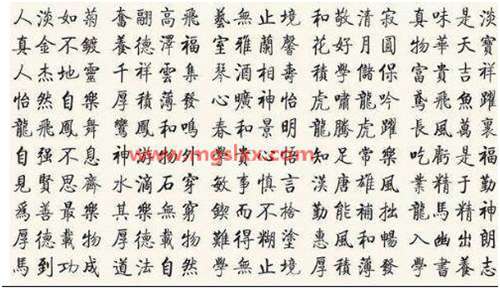 人淡如菊 奮翮高飛 藝無止境 和敬清寂 真味是淡
真金不鍍 養德澤福 室雅蘭馨 花好月圓 物華天寶
人杰地靈 千祥雲集 琴酒相壽 積學儲保 富貴吉祥
怡然自樂 厚積薄發 心曠神怡 虎嘯龍吟 鳶飛魚躍
龍飛鳳舞 鸞鳳和鳴 春和景明 龍騰虎躍 長風萬裏
自强不息 神物外 貴 知足常樂 吃虧是福
www.mgslxx.com
見賢思齊 水滴石穿 敏事慎言 漢唐雄風 業精于勤
爲善最樂 其樂無窮 鍥而不捨 勤能補拙 龍馬精神
厚德載物 厚德載物 難得糊塗 惠風和暢 入幽出朗
馬到功成 道法自然 學無止境 厚積薄發 學書養志